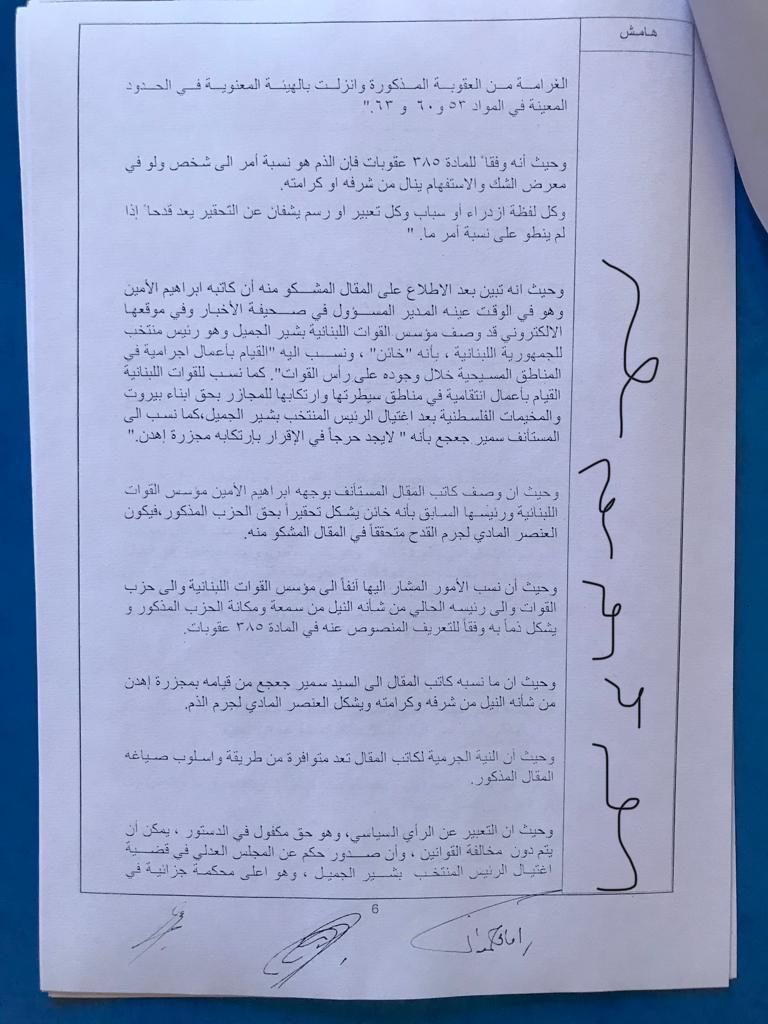 هامش
الغرامة من العقوبة المذكورة وانزلت بالهيئة المعنوية في الحدود
المعينة في المواد ٥٣ و٦٠ و ٦٣."
وحيث أنه وفقاً للمادة ٣٨٥ عقوبات فإن الذم هو نسبة أمر الى شخص ولو في
معرض الشك والاستفهام ينال من شرفه او كرامته.
وكل لفظة ازدراء أو سباب وكل تعبير او رسم يشفان عن التحقير يعد قدحاً إذا
لم ينطو على نسبة أمر ما. "
وحيث انه تبين بعد الاطلاع على المقال المشكو منه أن كاتبه ابراهيم الأمين
وهو في الوقت عينه المدير المسؤول في صحيفة الأخبار وفي موقعها
الالكتروني قد وصف مؤسس القوات اللبنانية بشير الجميل وهو رئيس منتخب
للجمهورية اللبنانية ، بأنه "خائن" ، ونسب اليه "القيام بأعمال اجرامية في
المناطق المسيحية خلال وجوده على رأس القوات". كما نسب للقوات اللبنانية
القيام بأعمال انتقامية في مناطق سيطرتها وارتكابها للمجازر بحق ابناء بيروت
والمخيمات الفلسطنية بعد اغتيال الرئيس المنتخب بشير الجميل،كما نسب الى
المستأنف سمير جعجع بأنه " لايجد حرجاً في الإقرار بإرتكابه مجزرة إهدن."
وحيث ان وصف كاتب المقال المستأنف بوجهه ابراهيم الأمين مؤسس القوات
اللبنانية ورئيسها السابق بأنه خائن يشكل تحقيراً بحق الحزب المذكور،فيكون
العنصر المادي لجرم القدح متحققاً في المقال المشكو منه.
وحيث أن نسب الأمور المشار اليها آنفاً الى مؤسس القوات اللبنانية والى حزب
القوات والى رئيسه الحالي من شأنه النيل من سمعة ومكانة الحزب المذكور و
يشكل ذماً به وفقاً للتعريف المنصوص عنه في المادة ٣٨٥ عقوبات.
وحيث ان ما نسبه كاتب المقال الى السيد سمير جعجع من قيامه بمجزرة إهدن
من شأنه النيل من شرفه وكرامته ويشكل العنصر المادي لجرم الذم.
وحيث أن النية الجرمية لكاتب المقال تعد متوافرة من طريقة واسلوب صياغه
المقال المذكور.
وحيث ان التعبير عن الرأي السياسي، وهو حق مكفول في الدستور ، يمكن أن
يتم دون مخالفة القوانين ، وأن صدور حكم عن المجلس العدلي في قضية
اغتيال الرئيس المنتخب بشير الجميل ، وهو اعلى محكمة جزائية في
6